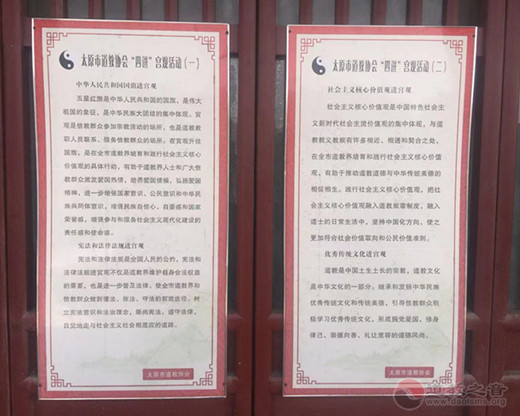 太原市道教协会“四进”宫观活动（一）
中华人民共和国国旗进宫观
五星红旗是中华人民共和国的国旗，是伟大
祖国的象征，是中华民族大团结的集中体现。宫
观是信教群众参加宗教活动的场所，也是道教教
职人员联系、服务信教群众的场所。在宫观升挂
国旗，是在全市道教界培育和践行社会主义核心
价值观的具体行动，有助于道教界人士和广大信
教群众激发爱国热情，培养爱国情操，弘扬爱国
精神，进一步增强国家意识、公民意识和中华民
族共同体意识，增强民族自信心、自豪感和国家
荣誉感，增强参与和投身社会主义现代化建设的
责任感和使命感。
宪法和法律法规进宫观
宪法和法律法规是全国人民的公约，宪法和
法律法规进宫观不仅是道教界维护自身合法权益
的需要，也是进一步普及法律，使全市道教界和
信教群众做到懂法、依法、守法的有效途径，树
立宪法意识和法治理念，崇尚宪法，遵守法律，
自觉地走与社会主义社会相适应的道路。
太原市道教协会
太原市道教协会“四进”宫观活动（二）
社会主义核心价值观进宫观
社会主义核心价值观是中国特色社会主
义新时代社会主流价值观的集中体现，与道
教教义教规有许多相近、相通和契合之处。
在全市道教界培育和践行社会主义核心价值
观，有助于推动道教道德与中华传统美德的
相似相生。践行社会主义核心价值观，把社
会主义核心价值观融入道教规章制度，融入
道士的日常生活中，坚持中国化方向，使之
更加符合社会价值取向和公民价值准则。
优秀传统文化进宫观
道教是中国土生土长的宗教，道教文化
是中华文化的一部分。继承和发扬中华民族
优秀传统文化和传统美德，引导信教群众积
极学习优秀传统文化，形成拥党爱国、修身
律己、崇德向善、礼让宽容的道德风尚。
太原市道教协会
道教之音
www.daoisms.org